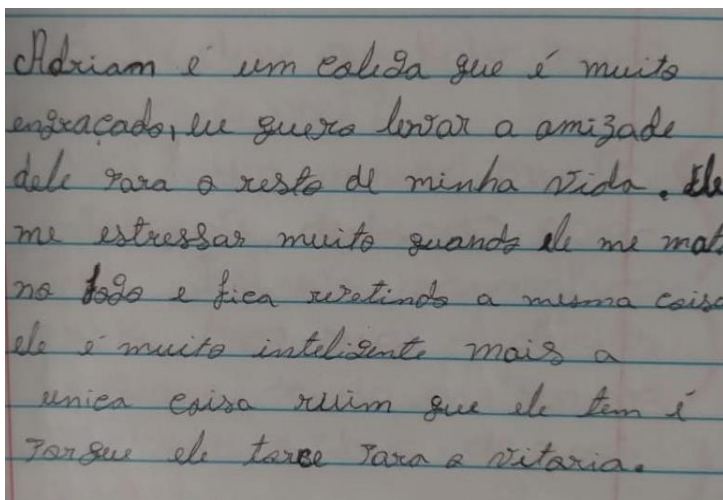 Adriam é um colega que é muito
engraçado, eu quero levar a amizade
dele para o resto de minha vida. Ele
me estressar muito quando ele me mata
no jogo e fica repetindo a mesma coisa
ele é muito inteligente mais a
unica coisa ruim que ele tem é
porque ele torce para o vitoria.